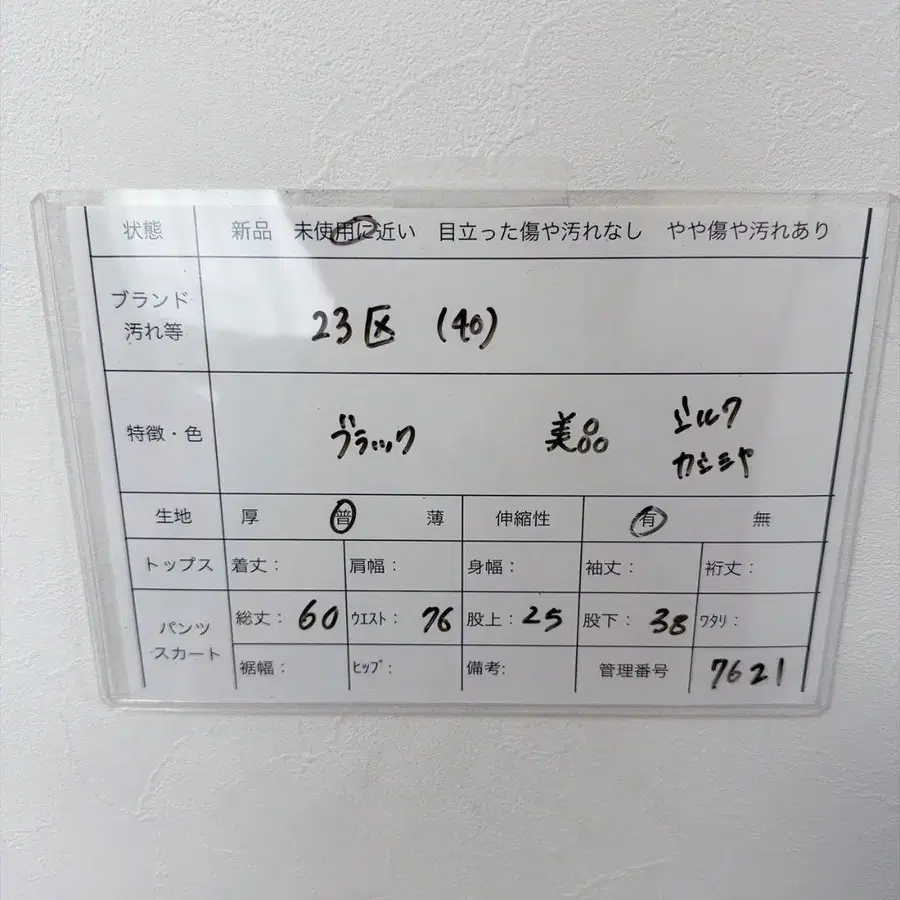 状態 新品 未使用に近い 目立った傷や汚れなし やや傷や汚れあり
ブランド
汚れ等
23区 (40)
特徴・色
ブラック 美品 シルク
カシミヤ
生地 厚 普 薄 伸縮性 有 無
トップス 着丈： 肩幅： 身幅： 袖丈： 裄丈：
パンツ
スカート
総丈：60 ウエスト：76 股上：25 股下：38 ワタリ：
裾幅： ヒップ： 備考: 管理番号 7621